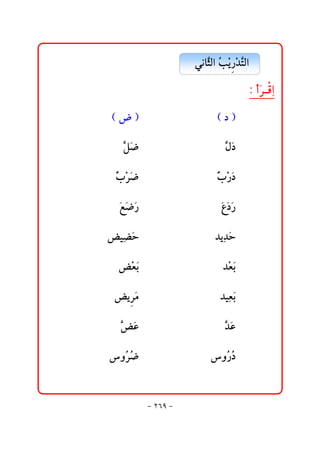 التَّدْرِيْبُ الثَّاني
اِقْـرَأْ :
( د ) ( ض )
دَلَّ ضَلَّ
دَرْبٌ ضَرْبٌ
رَدَعَ رَضَعَ
حَدِيد حَضِيض
بَعْد بَعْض
بَعِيد مَرِيض
عَدَّ عَضَّ
دُرُوس ضُرُوس
- ٢٦٩ -